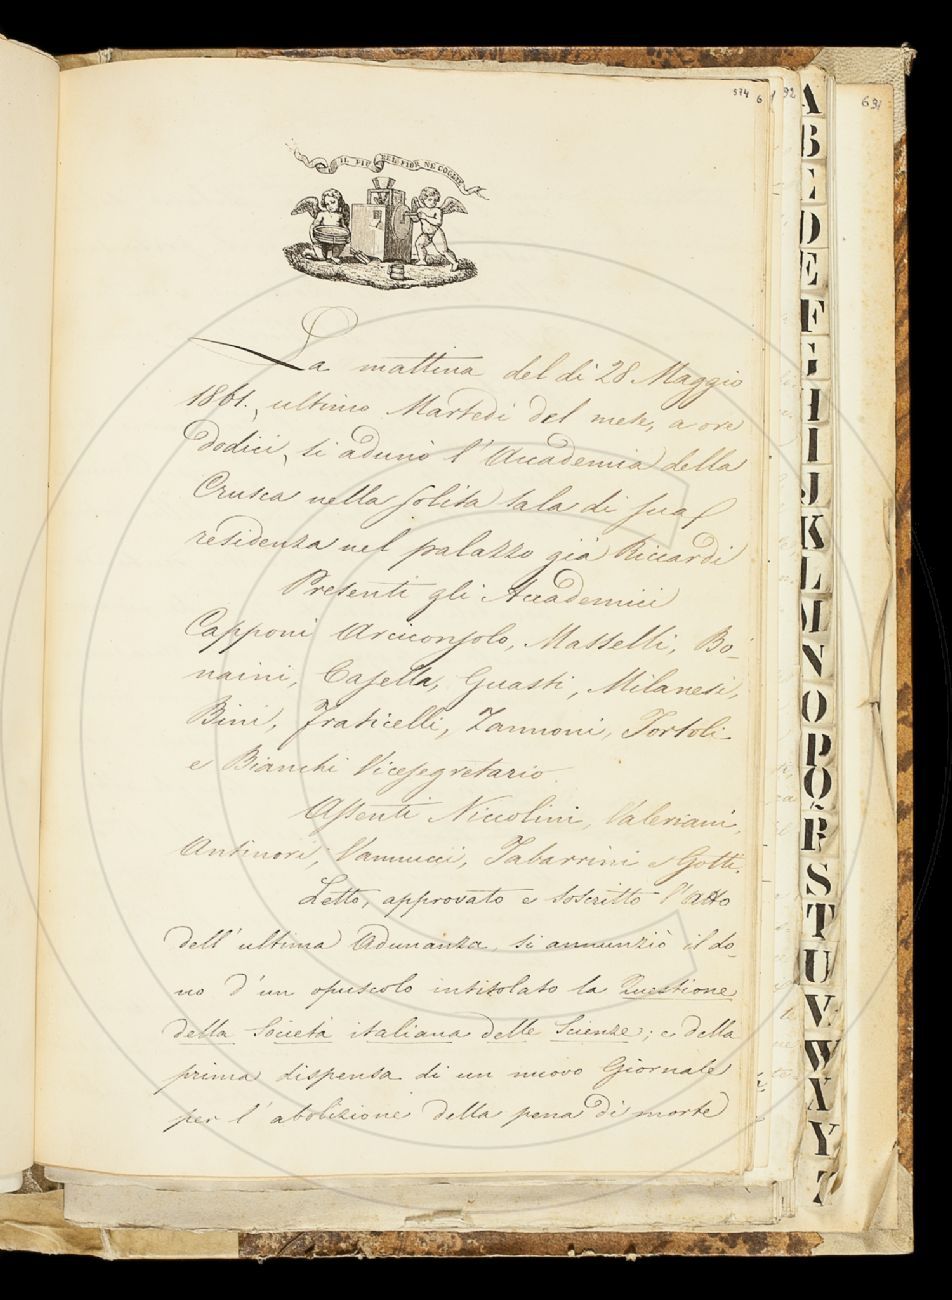 974
6
92
691
IL PIÙ BEL FIOR NE COGLIE
La mattina del dì 28 Maggio
1861., ultimo Martedì del mese, a ore
dodici, si adunò l'Accademia della
Crusca nella solita sala di sua
residenza nel palazzo già Riccardi
Presenti gli Accademici
Capponi Arciconsolo, Masselli, Bo-
naini, Casella, Guasti, Milanesi,
Bini, Fraticelli, Zannoni, Tortoli
e Bianchi Vicesegretario.
Assenti Niccolini, Valeriani,
Antinori, Vannucci, Tabarrini e Gotti.
Letto, approvato e soscritto l'Atto
dell'ultima Adunanza, si annunziò il do-
no d'un opuscolo intitolato la Questione
della Società italiana delle Scienze; e della
prima dispensa di un nuovo Giornale
per l'abolizione della pena di morte
A
B
C
D
E
F
G
H
I
J
K
L
M
N
O
P
Q
R
S
T
U
V
W
X
Y
Z